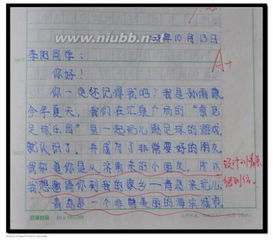 www.niubb.net
10月13日
A+
李阳同学:
你好!
你一定还记得我吧?我是孙雨
今年夏天,我们在汇泉广场的“意见
足球乐园”里一起玩儿踢足球的游戏,
就认识了。并成为了非常要好的朋友。
我知道你是从济南来的小朋友,所以
我想邀请你到我的家乡—青岛来玩儿。
青岛是一个非常美丽的海滨城市